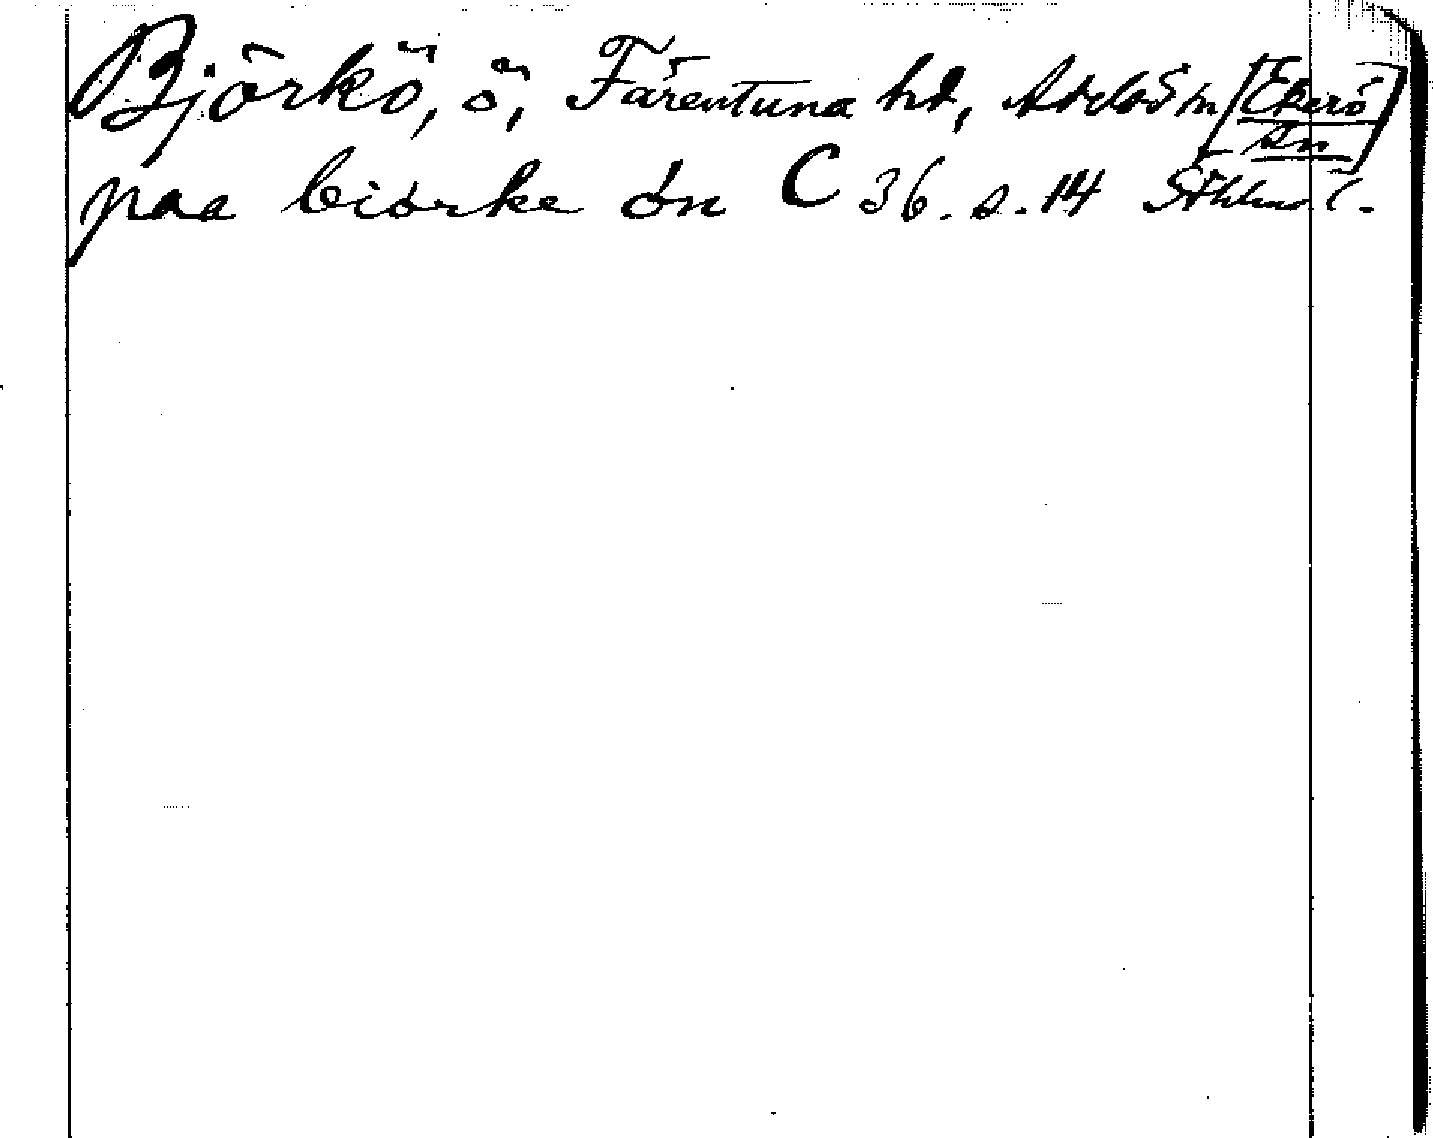 Björkö, ö, Färentuna hd, Adelsö sn [Ekerö sn]
paa biørke øn C 36. s. 14 Sthlms l.